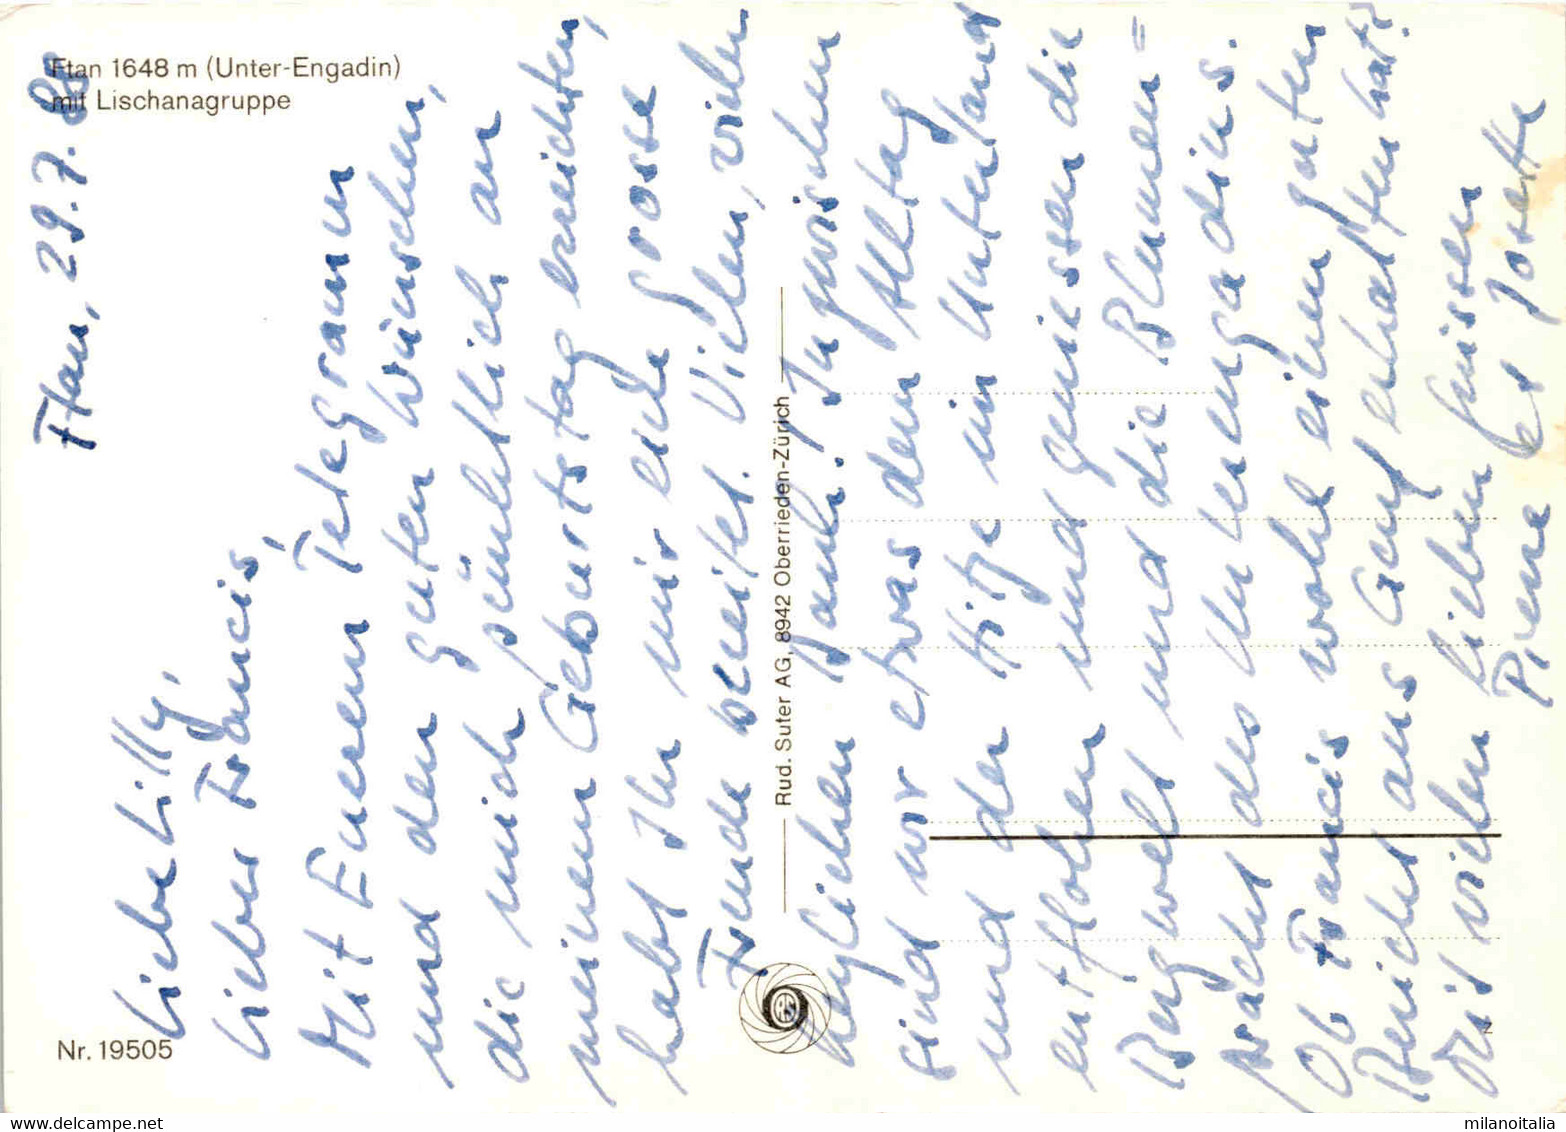 Ftan 1648 m (Unter-Engadin)
mit Lischanagruppe
Nr. 19505
Rud. Suter AG, 8942 Oberrieden-Zürich
Ftan, 29.7.83
Liebe Lilly,
lieber Francis,
Mit Eurem Telegramm
und den guten Wünschen,
die mich pünktlich an
meinem Geburtstag erreichten,
habt Ihr mir eine grosse
Freude bereitet. Vielen, vielen
herzlichen Dank! Inzwischen
sind wir etwas dem Alltag
und der Hitze im Unterland
entflohen und geniessen die
Bergwelt und die Blumen=
pracht des Unterengadins.
Ob Francis wohl einen guten
Bericht aus Genf erhalten hat?
Mit vielen lieben Grüssen
Pierre et Josette
z
milanoitalia